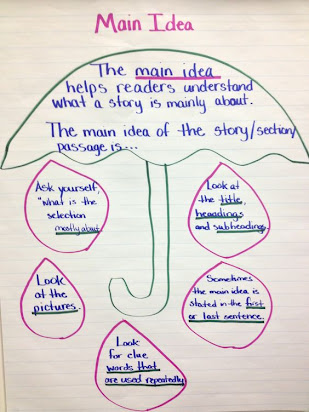 Main Idea
The main idea
helps readers understand
what a story is mainly about.
The main idea of the story/section/
passage is...
Ask yourself,
"What is the
selection
mostly about
Look at
the title,
headings
and subheadings.
Look
at the
pictures.
Sometimes
the main idea is
stated in the first
or last sentence.
Look
for clue
words that
are used repeatedly